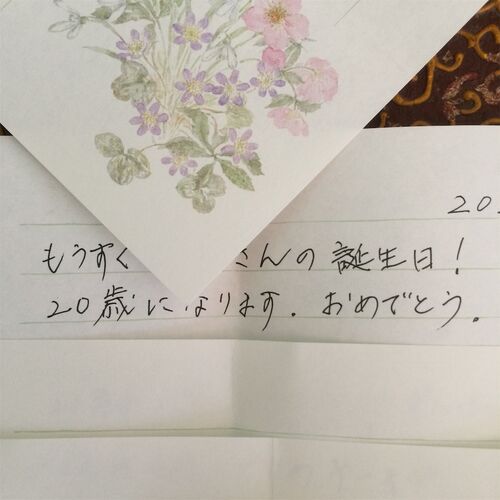 20
もうすぐ さんの誕生日!
20歳になります. おめでとう。